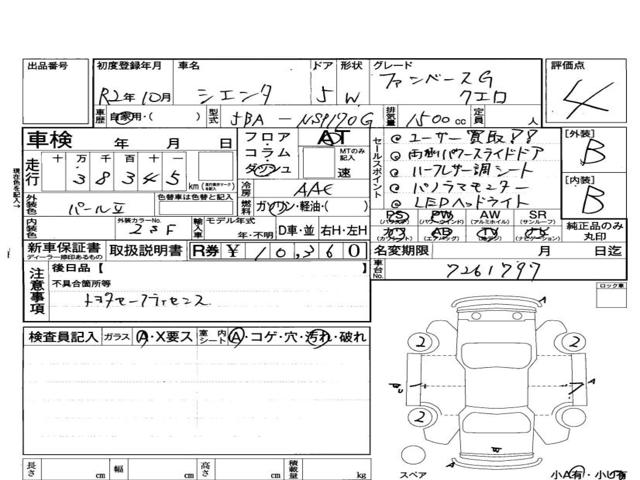 出品番号
初度登録年月 車名 ドア 形状 グレード 評価点
R2年10月 シエンタ 5 W ファンベースG クエロ 4
車歴 自家用・( ) 型式 5BA-NSP170G 排気量 1500cc 定員 人
車検 年 月 日
フロア・コラム・ダッシュ AT MTのみ記入 速
走行 十 万 千 百 十 一
3 8 3 4 5 km
現在色を記入→
外装色 パールⅡ 色替車は色替と記入
冷房 AAC
燃料 ガソリン・軽油・( )
内装色 外装カラーNo. 輸入車 モデル年式 年・不明 D車・並 右H・左H
セールスポイント
ユーザー買取
両側パワースライドドア
ハーフレザー調シート
パノラマモニター
LEDヘッドライト
[外装] B
[内装] B
PS PW AW SR
(パワステ) (パワーウインド) (アルミホイル) (サンルーフ)
純正品のみ丸印
新車保証書 ディーラー捺印あるもの 取扱説明書 R券 ¥10,360
名変期限 月 日迄
車台No. 7261797
注意事項
後日品[
不具合箇所等
ロック車
検査員記入 ガラス A・X要ス 室内シート A・コゲ・穴・汚れ・破れ
2 2
A A
2 2
スペア
小A有・小U有
長さ cm 幅 cm 高さ cm 積載量 kg